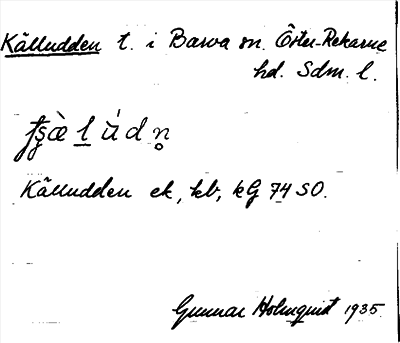 Källudden t. i Barva sn. Öster-Rekarne
hd. Sdm. l.
Källudden ek, kb, kG 74 SO.
Gunnar Holmquist 1935